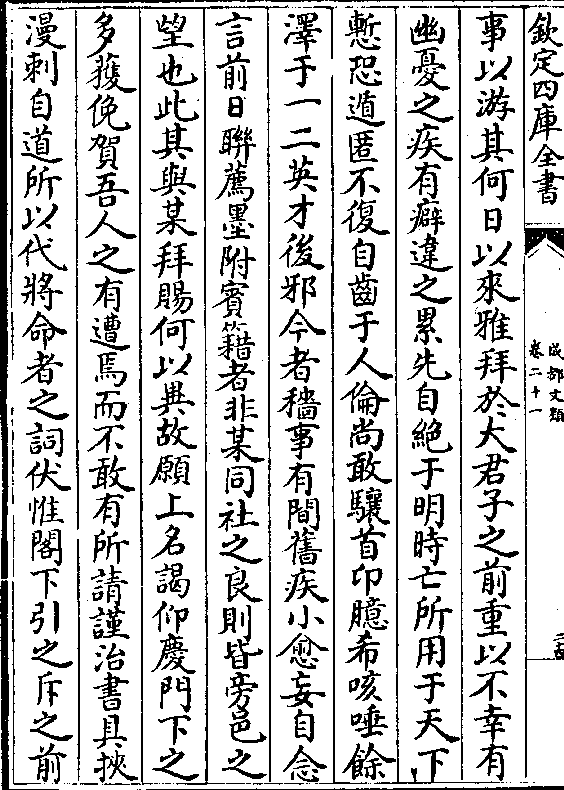 欽定四庫全書
成都文類
卷二十一
事以游其何日以來雅拜於大君子之前重以不幸有
幽憂之疾有癖違之累先自絕于明時亡所用于天下
慙恐遁匿不復自齒于人倫尚敢驤首卬臆希咳唾餘
澤于一二英才後邪今者穡事有間舊疾小愈妄自念
言前日聯薦墨附賓籍者非某同社之良則皆旁邑之
望也此其與某拜賜何以異故願上名謁仰慶門下之
多獲俛賀吾人之有遭焉而不敢有所請謹治書具挾
漫刺自道所以代將命者之詞伏惟閣下引之斥之前